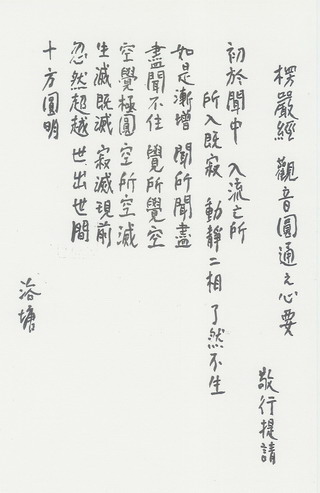 楞嚴經 觀音圓通之心要
敬行提請
初於聞中 入流亡所
所入既寂 動靜二相 了然不生
如是漸增 聞所聞盡
盡聞不住 覺所覺空
空覺極圓 空所空滅
生滅既滅 寂滅現前
忽然超越 世出世間
十方圓明
浴塘